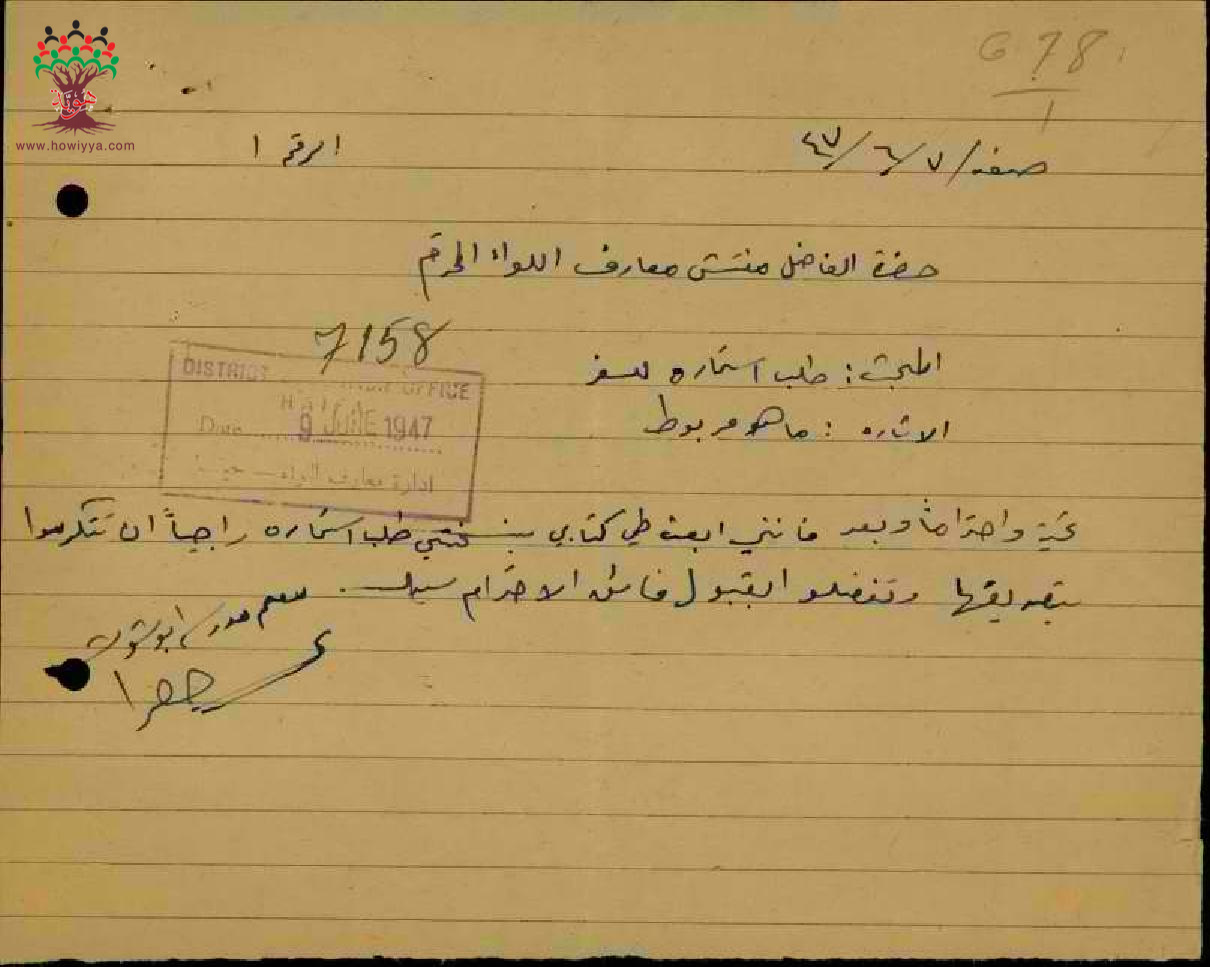 G 78
1
هوية
www.howiyya.com
صفد / ٧ / ٦ / ٤٧
الرقم ١
حضرة الفاضل مفتش معارف اللواء المحترم
7158
DISTRICT OFFICE
Date 9 JUNE 1947
ادارة معارف اللواء
المبحث : طلب استماره للسفر
الاشاره : ما هو مربوط
تحية واحتراماً وبعد فانني ابعث طي كتابي بنسختي طلب استماره راجياً ان تتكرموا
بتصديقها وتفضلوا بقبول فائق الاحترام سيدي .
معلم مدرسة ابو شوشة